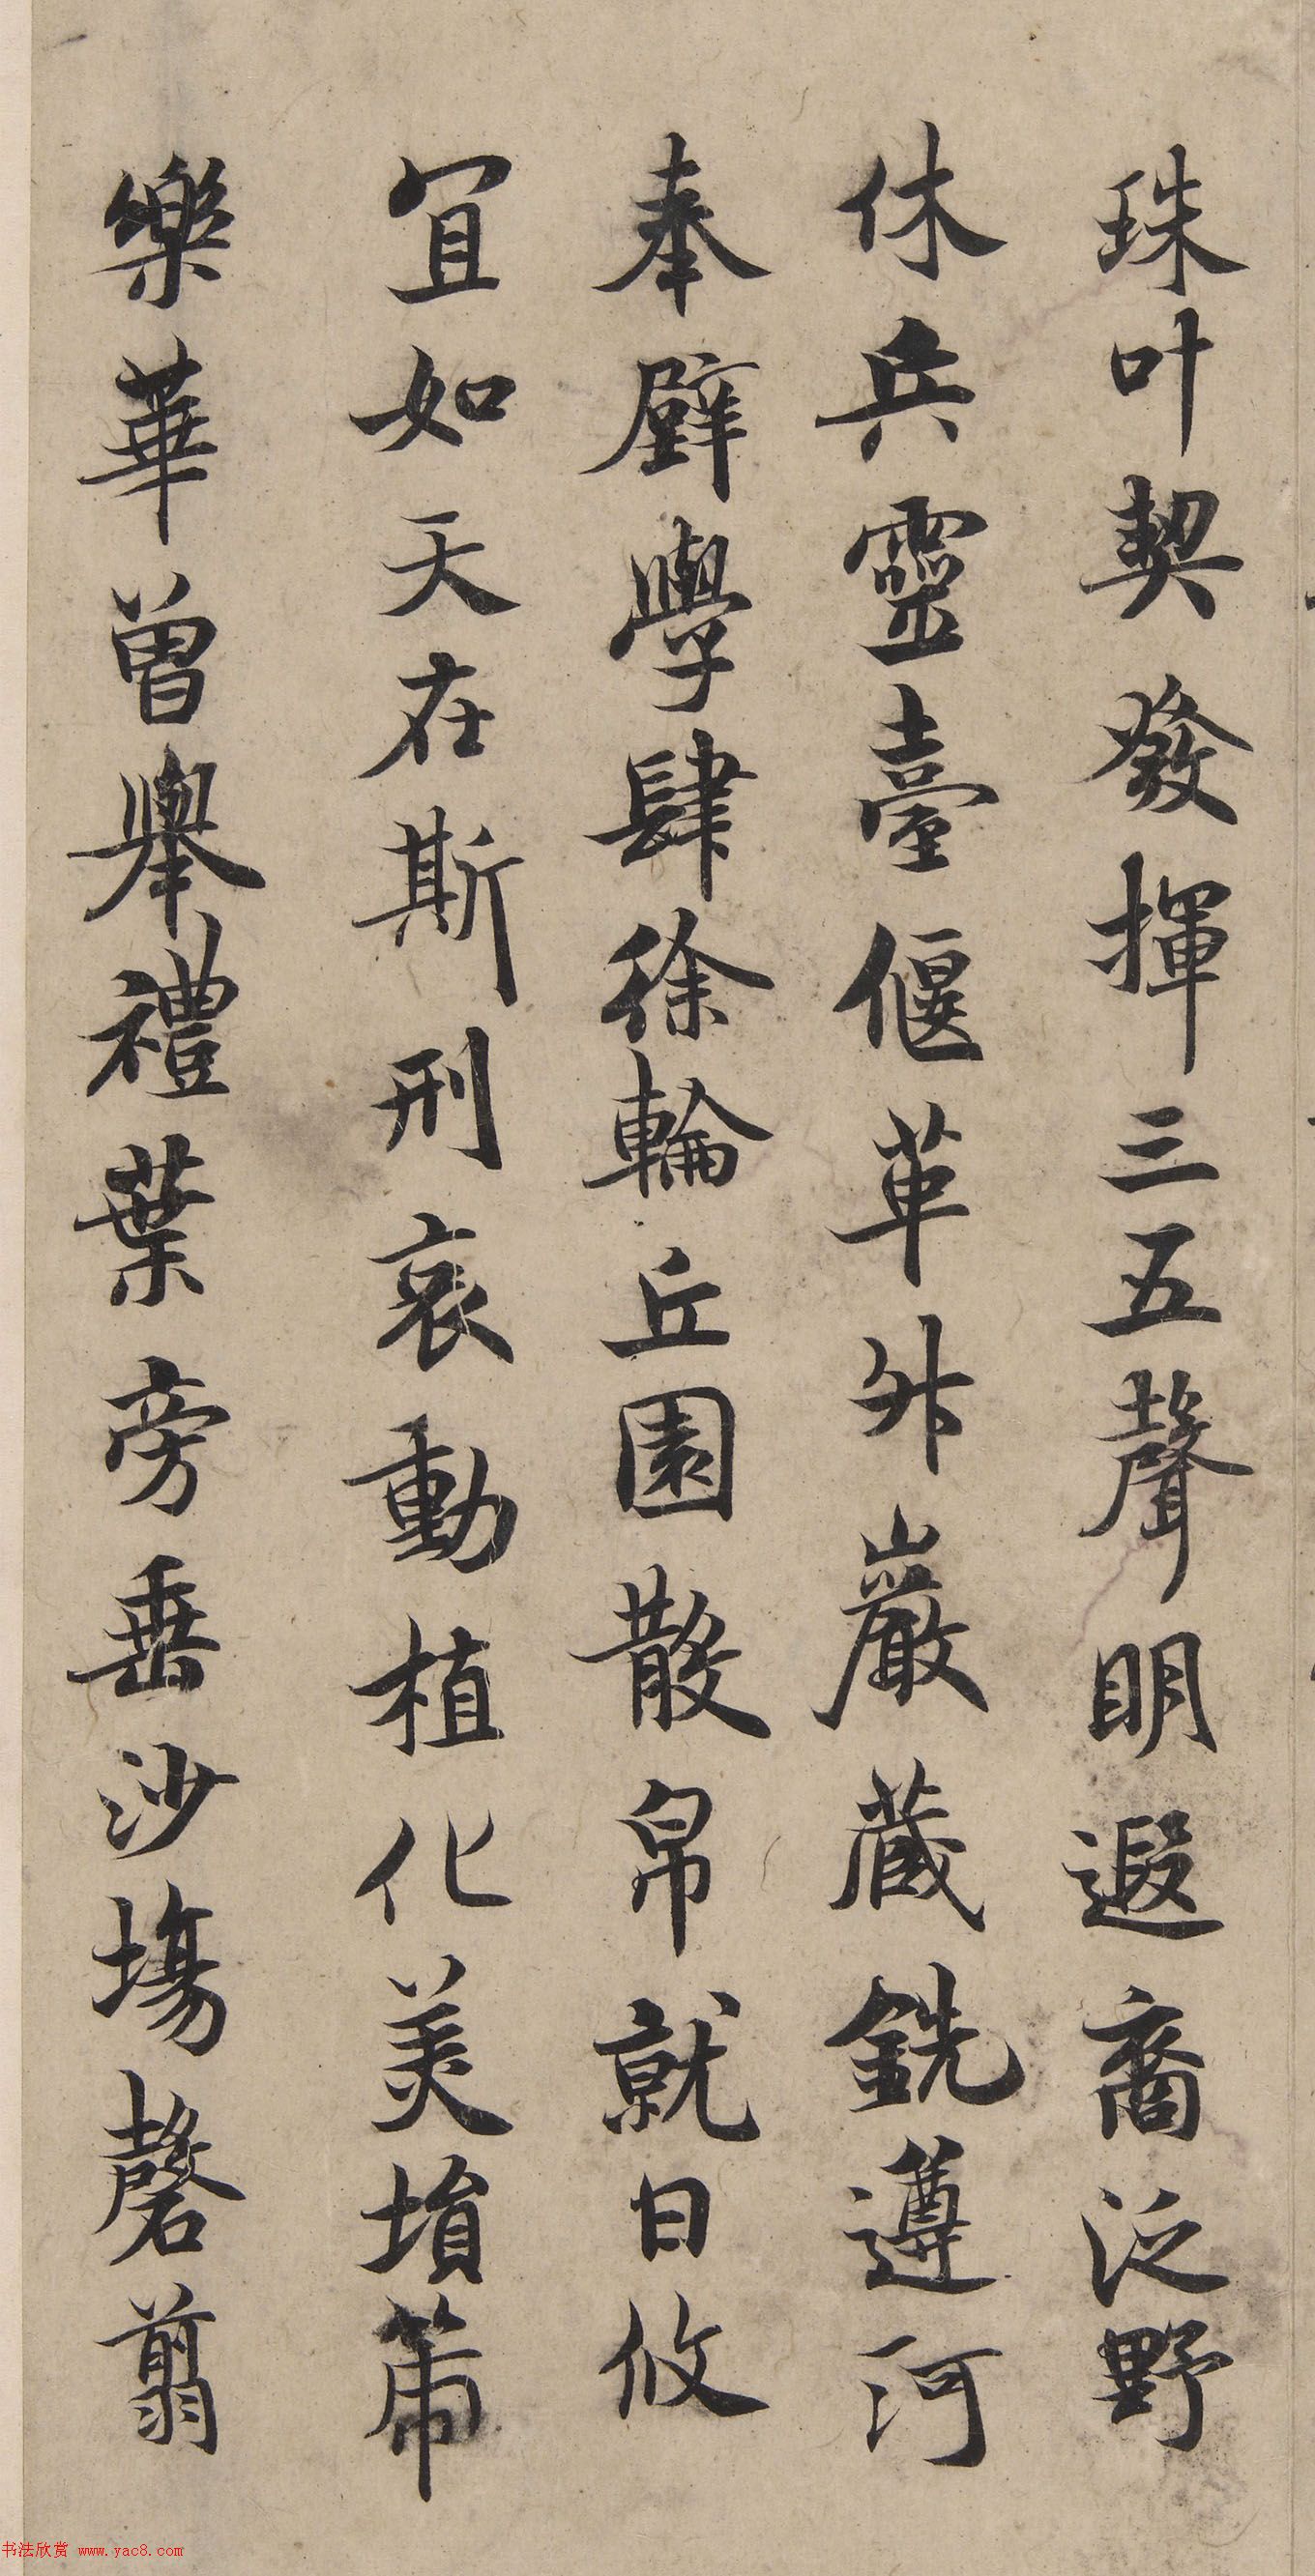 珠叶契發揮三五聲明遐裔泛野
休兵靈臺偃革舛巖藏銑遵河
奉璧學肆徐輪丘園散帛就日攸
宜如天在斯刑哀動植化美埙箒
樂華曾舉禮葉旁垂沙塲磬翦
书法欣赏 www.yac8.com